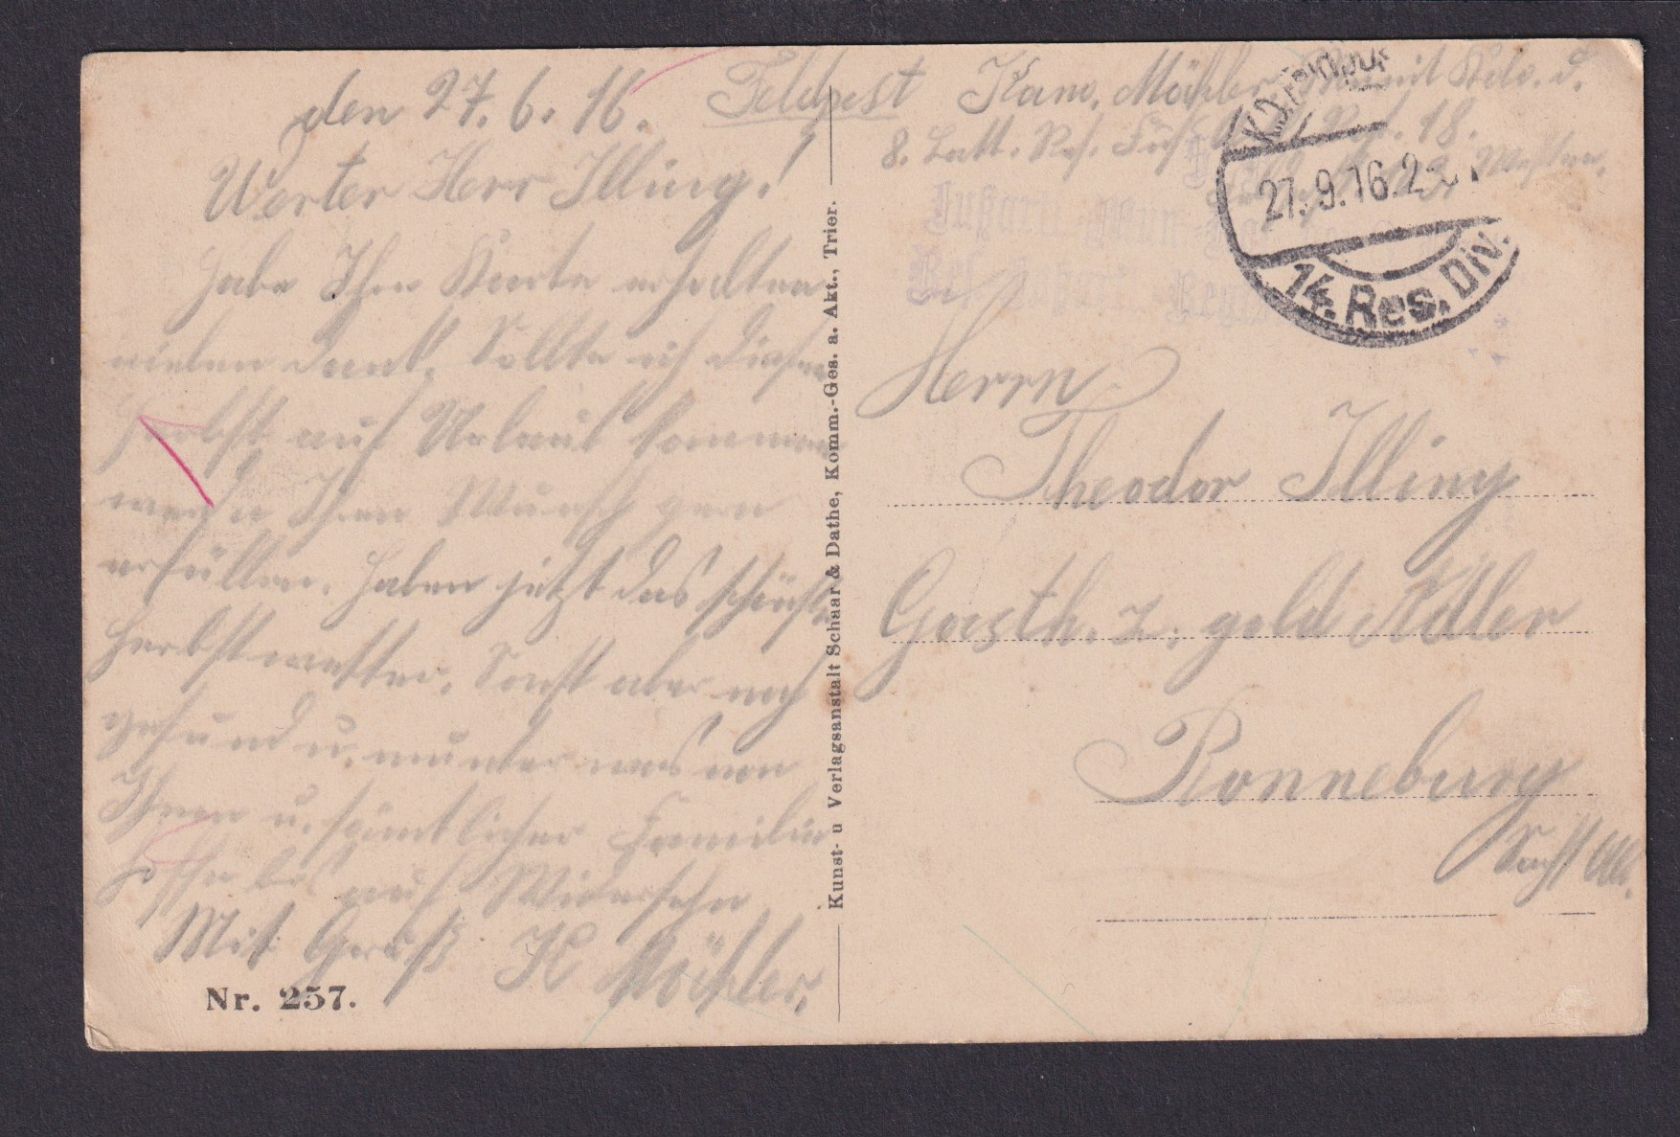 den 27. 6. 16.
Werter Herr Illing!
Habe Ihre Karte erhalten
vielen Dank. Sollte ich diesen
Herbst auf Urlaub kommen
werde Ihren Wunsch gern
erfüllen. Haben jetzt das schönste
Herbstwetter. Sonst aber noch
gesund u. munter was von
Ihnen u. sämtlicher Familie
hoffe bis auf Wiedersehn
Mit Gruß K Möhler.
Nr. 257.
Kunst- u Verlagsanstalt Schaar & Dathe, Komm.-Ges. a. Akt., Trier.
Feldpost
Kano. Möhler, d.
8. Batt. Res. Fuß 18.
K.D. Feldpost
27.9.16.2-
14. Res. Div.
Herrn
Theodor Illing
Gasth. z. gold Adler
Ronneburg
Sachs Alt.